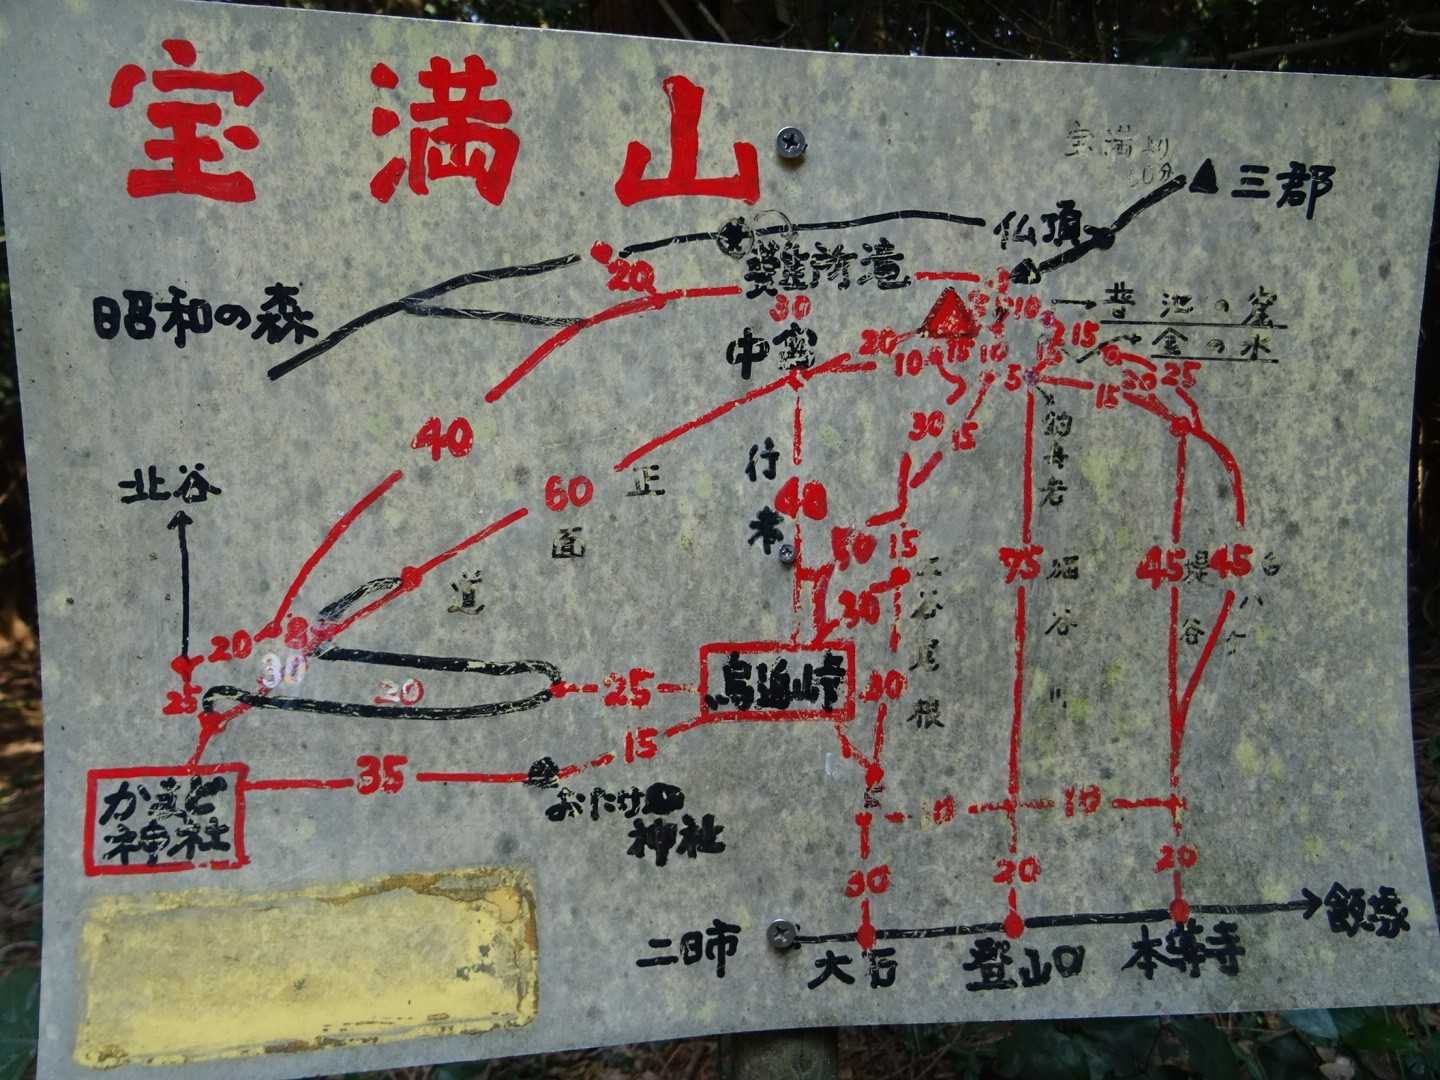 宝満山
宝満より
60分
三郡
仏頂
難所滝
昭和の森
20
30
中宮
20
10
15
10
10
15
普池の窟
金の水
5
15
20
25
15
釣舟岩
30
15
40
北谷
60
正面道
行者
40
50
15
30
75
堀谷川
45
堤谷
45
谷尾根
20
8
30
25
20
25
烏追峠
30
かまど
神社
35
15
おたけ
神社
10
10
30
20
20
二日市
大石
登山口
本導寺
飯塚